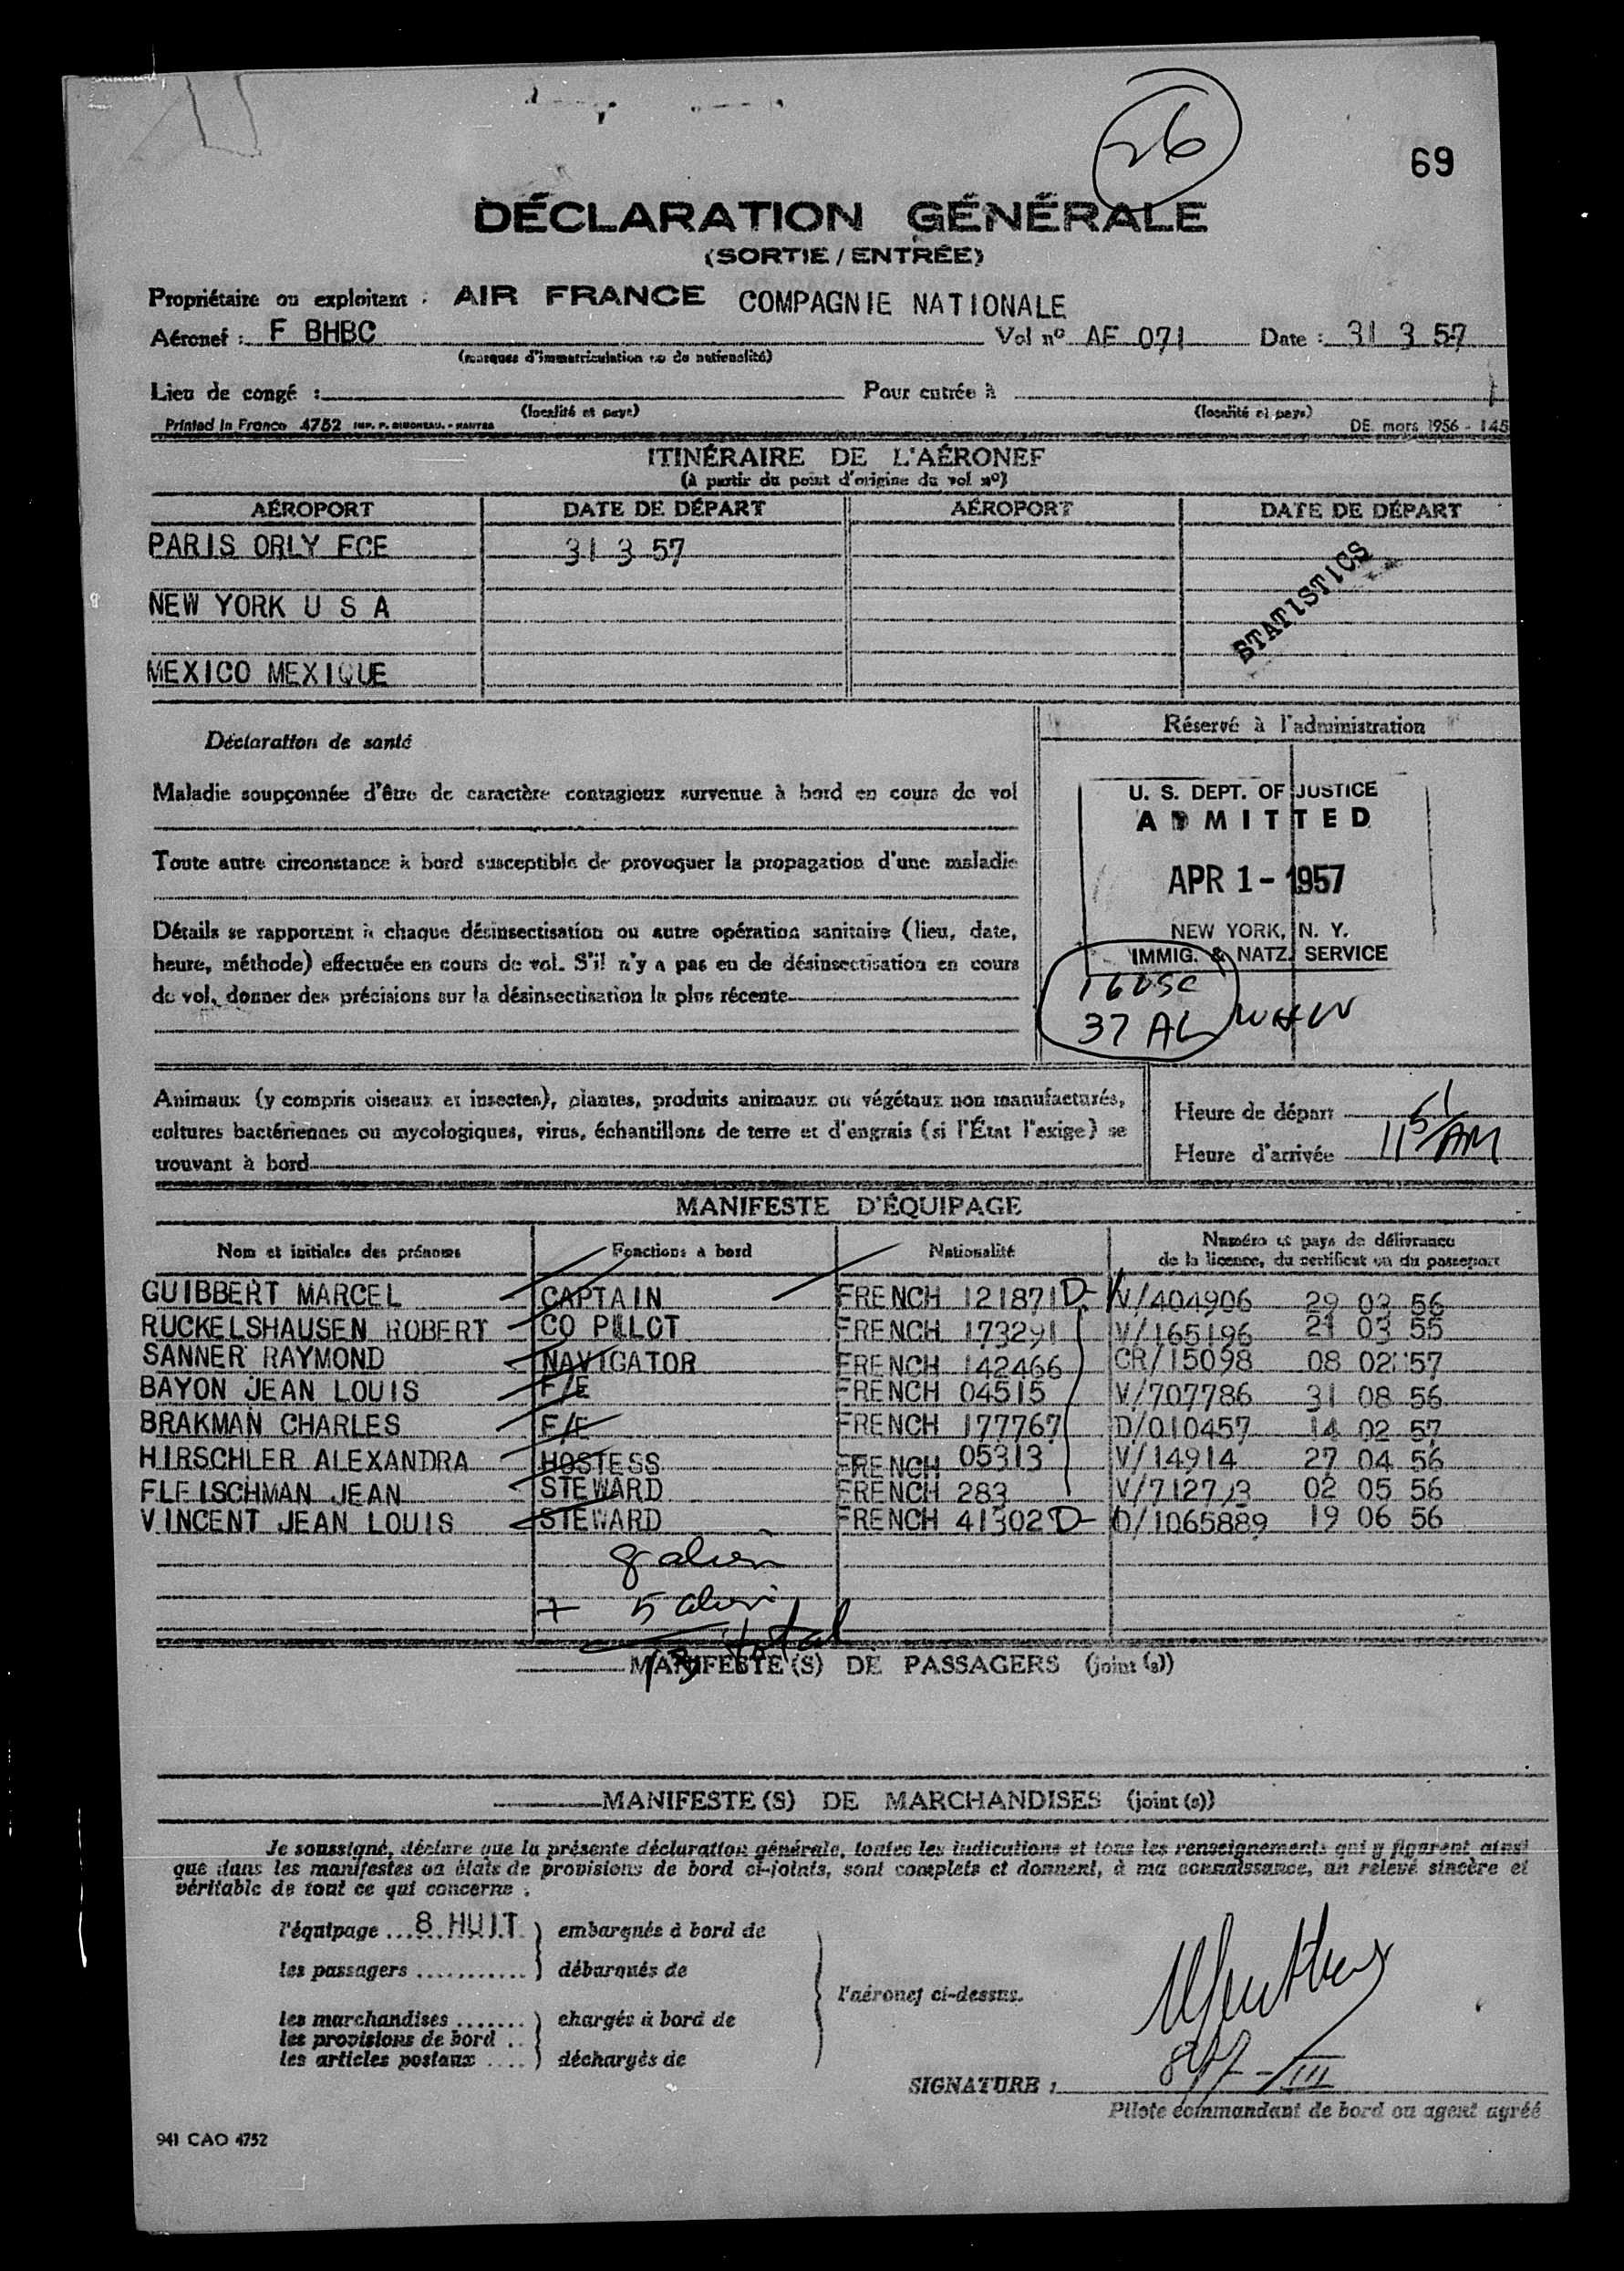 26
69
DÉCLARATION GÉNÉRALE
(SORTIE / ENTRÉE)
Propriétaire ou exploitant : AIR FRANCE COMPAGNIE NATIONALE
Aéronef : F BHBC Vol nº AF 071 Date : 31 3 57
(marques d'immatriculation ou de nationalité)
Lieu de congé : Pour entrée à
(localité et pays) (localité et pays)
Printed in France 4752 IMP. F. SIMONEAU. - NANTES DE. mars 1956 - 145
ITINÉRAIRE DE L'AÉRONEF
(à partir du point d'origine du vol nº)
AÉROPORT DATE DE DÉPART AÉROPORT DATE DE DÉPART
PARIS ORLY FCE 31 3 57
STATISTICS
NEW YORK U S A
MEXICO MEXIQUE
Déclaration de santé
Réservé à l'administration
Maladie soupçonnée d'être de caractère contagieux survenue à bord en cours de vol
Toute autre circonstance à bord susceptible de provoquer la propagation d'une maladie
Détails se rapportant à chaque désinsectisation ou autre opération sanitaire (lieu, date,
heure, méthode) effectuée en cours de vol. S'il n'y a pas eu de désinsectisation en cours
de vol, donner des précisions sur la désinsectisation la plus récente
U. S. DEPT. OF JUSTICE
ADMITTED
APR 1 - 1957
NEW YORK, N. Y.
IMMIG. & NATZ. SERVICE
16 USC
37 AL
Animaux (y compris oiseaux et insectes), plantes, produits animaux ou végétaux non manufacturés,
cultures bactériennes ou mycologiques, virus, échantillons de terre et d'engrais (si l'État l'exige) se
trouvant à bord
Heure de départ
Heure d'arrivée 11 51 AM
MANIFESTE D'ÉQUIPAGE
Nom et initiales des prénoms Fonctions à bord Nationalité Numéro et pays de délivrance
de la licence, du certificat ou du passeport
GUIBBERT MARCEL CAPTAIN FRENCH 121871 D- V/404906 29 03 56
RUCKELSHAUSEN ROBERT CO PILOT FRENCH 173291 V/165196 21 03 55
SANNER RAYMOND NAVIGATOR FRENCH 142466 CR/15098 08 02 57
BAYON JEAN LOUIS F/E FRENCH 04515 V/707786 31 08 56
BRAKMAN CHARLES F/E FRENCH 177767 D/010457 14 02 57
HIRSCHLER ALEXANDRA HOSTESS FRENCH 05313 V/14914 27 04 56
FLEISCHMAN JEAN STEWARD FRENCH 283 V/712793 02 05 56
VINCENT JEAN LOUIS STEWARD FRENCH 41302 D- D/1065889 19 06 56
8 alien
+ 5 alien
13 total
MANIFESTE(S) DE PASSAGERS (joint (s))
MANIFESTE(S) DE MARCHANDISES (joint (s))
Je soussigné, déclare que la présente déclaration générale, toutes les indications et tous les renseignements qui y figurent ainsi
que dans les manifestes ou états de provisions de bord ci-joints, sont complets et donnent, à ma connaissance, un relevé sincère et
véritable de tout ce qui concerne :
l'équipage 8 HUIT embarqués à bord de
les passagers débarqués de
l'aéronef ci-dessus.
les marchandises chargés à bord de
les provisions de bord
les articles postaux déchargés de
SIGNATURE :
Pilote commandant de bord ou agent agréé
941 CAO 4752